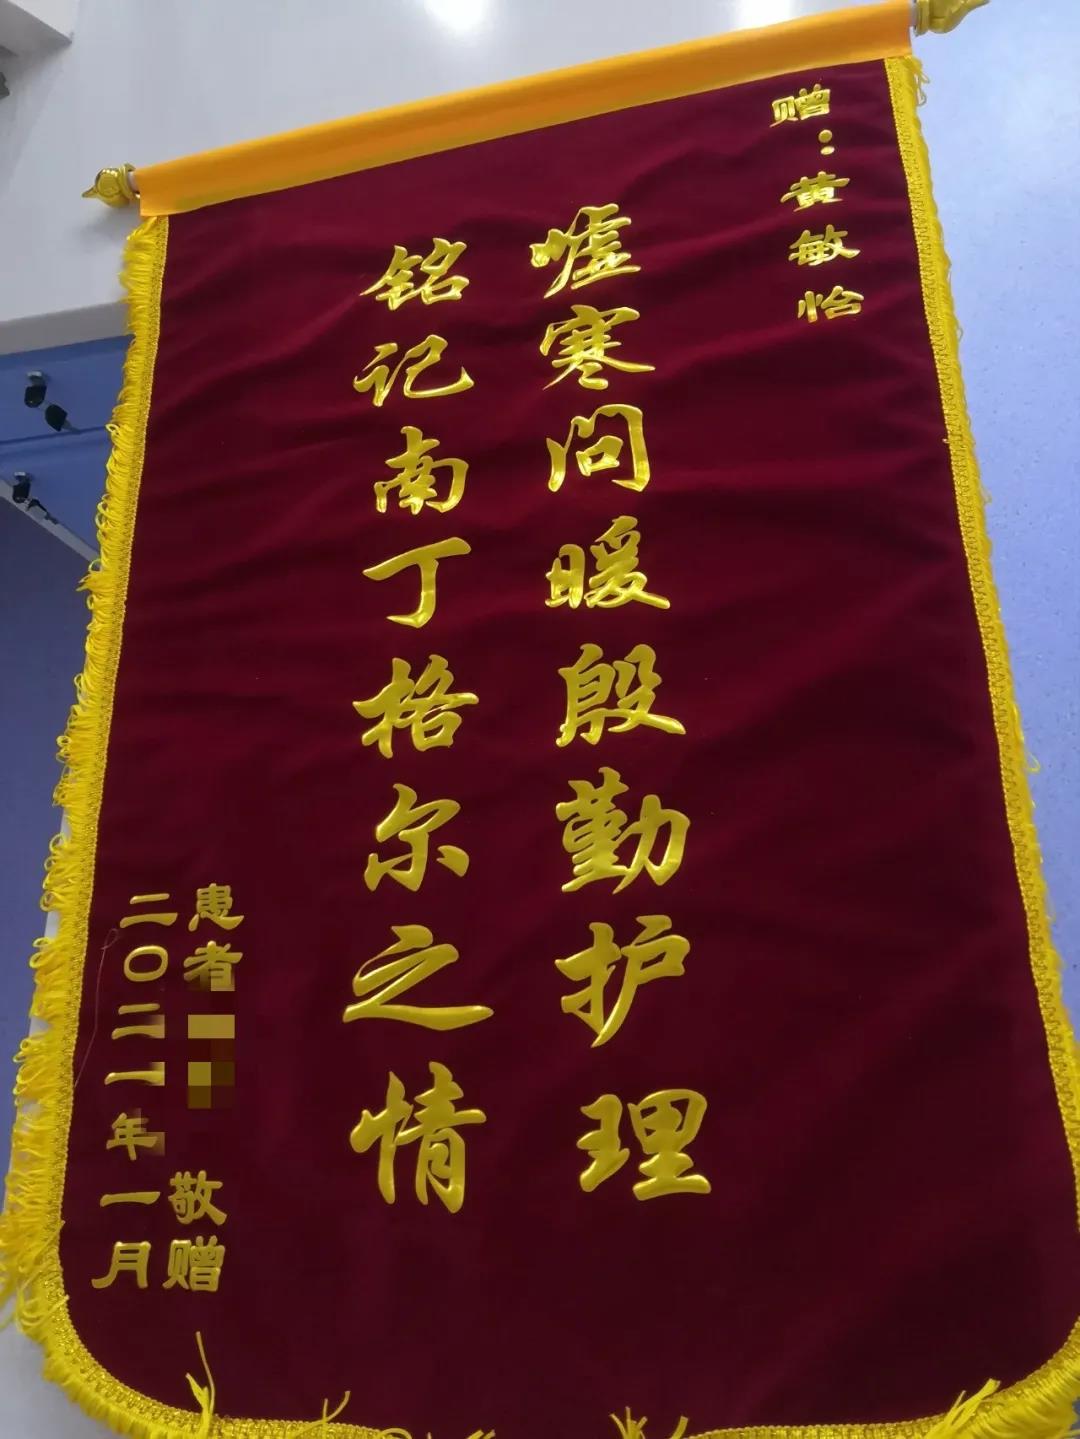 赠：黄敏怡
嘘寒问暖殷勤护理
铭记南丁格尔之情
患者
敬赠
二〇二一年一月